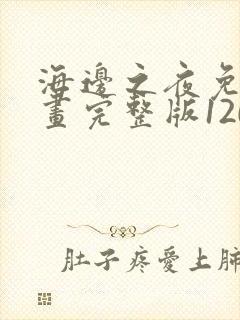 海邊之夜免
畫完整版120
肚子疼愛上肺